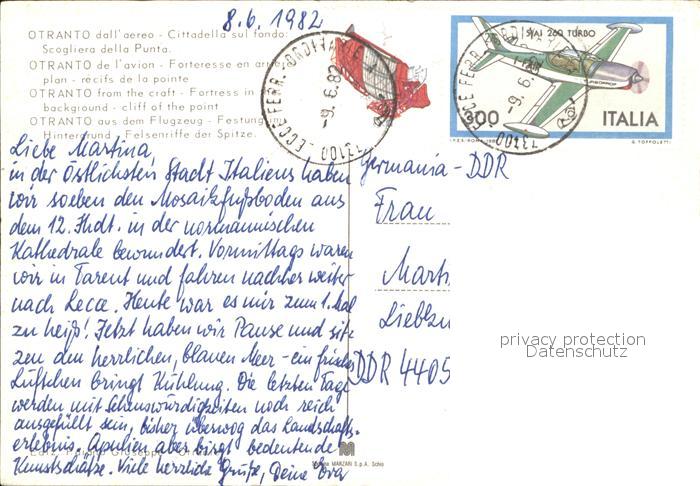 8.6.1982
OTRANTO dall'aereo - Cittadella sul fondo:
Scogliera della Punta.
OTRANTO de l'avion - Forteresse en arrière
plan - récifs de la pointe
OTRANTO from the craft - Fortress in
background - cliff of the point
OTRANTO aus dem Flugzeug - Festung im
Hintergrund - Felsenriffe der Spitze.
SIAI 260 TURBO
300
ITALIA
I.P.Z.S. ROMA
G. TOFFOLETTI
73100 LECCE FERR. ORDINARIE
-9.6.82
73100 LECCE FERR. ORDINARIE
-9.6.
Liebe Martina,
in der östlichsten Stadt Italiens haben
wir soeben den Mosaikfußboden aus
dem 12. Jhdt. in der normannischen
Kathedrale bewundert. Vormittags waren
wir in Tarent und fahren nachher weiter
nach Lecce. Heute war es mir zum 1. Mal
zu heiß! Jetzt haben wir Pause und sit-
zen den herrlichen, blauen Meer - ein frisches
Lüftchen bringt Kühlung. Die letzten Tage
werden mit Sehenswürdigkeiten noch reich
ausgefüllt sein, bisher überwog das Landschafts-
erlebnis. Apulien aber birgt bedeutende
Kunstschätze. Viele herzliche Grüße, Deine Eva
Germania - DDR
Frau
Marti
Liebku
DDR 4405
privacy protection
Datenschutz
MARZARI S.p.A. Schio